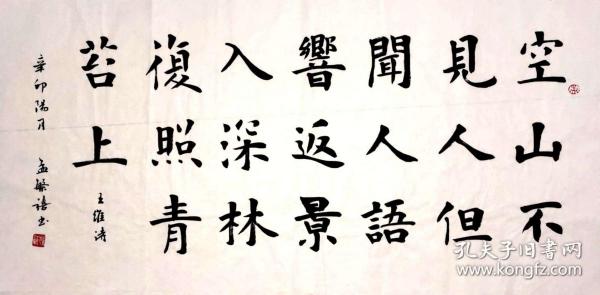 空山不
見人但
聞人語
響返景
入深林
復照青
苔上
王維詩
辛卯陽月 孟繁禧书
孔夫子旧书网
www.kongfz.com